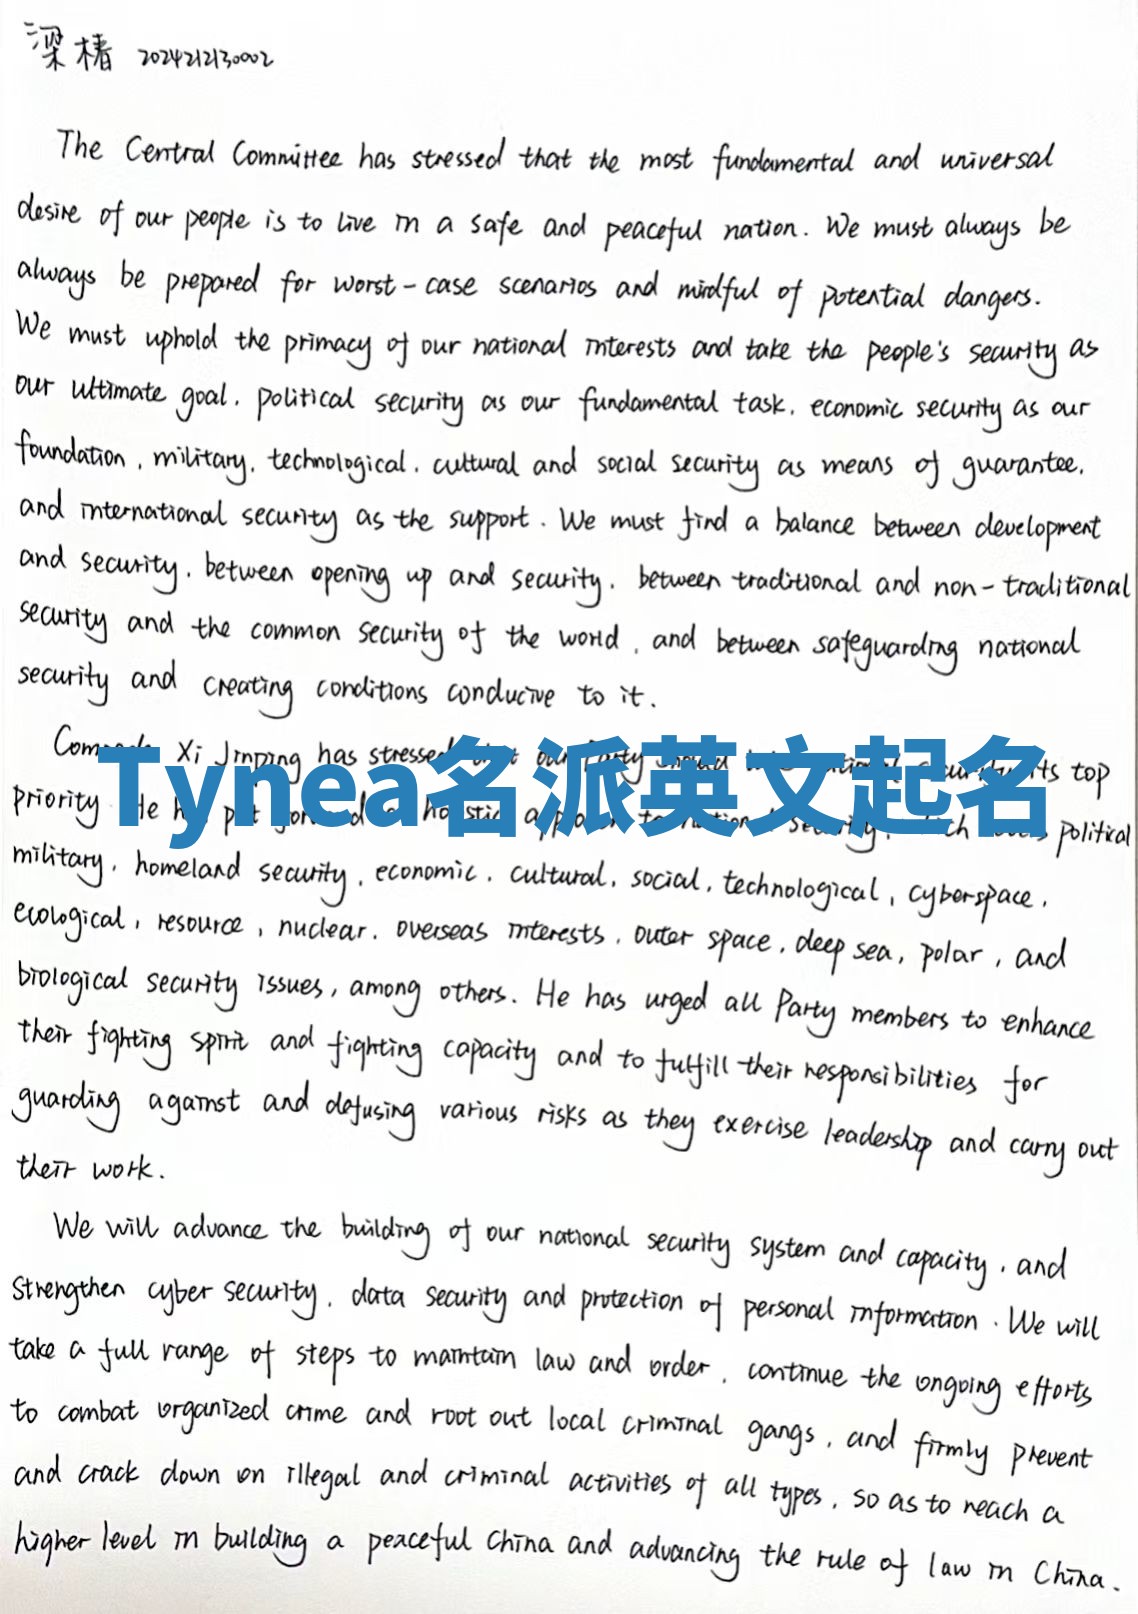 梁椿 2024212130002
The Central Committee has stressed that the most fundamental and universal
desire of our people is to live in a safe and peaceful nation. We must always be
always be prepared for worst-case scenarios and mindful of potential dangers.
We must uphold the primacy of our national interests and take the people's security as
our ultimate goal, political security as our fundamental task, economic security as our
foundation, military, technological, cultural and social security as means of guarantee,
and international security as the support. We must find a balance between development
and security, between opening up and security, between traditional and non-traditional
security and the common security of the world, and between safeguarding national
security and creating conditions conducive to it.
Xi Jinping has stressed our Party top
Tynea名派英文起名
priority He political
military, homeland security, economic, cultural, social, technological, cyberspace,
ecological, resource, nuclear, overseas interests, outer space, deep sea, polar, and
biological security issues, among others. He has urged all Party members to enhance
their fighting spirit and fighting capacity and to fulfill their responsibilities for
guarding against and defusing various risks as they exercise leadership and carry out
their work.
We will advance the building of our national security system and capacity, and
strengthen cyber security, data security and protection of personal information. We will
take a full range of steps to maintain law and order, continue the ongoing efforts
to combat organized crime and root out local criminal gangs, and firmly prevent
and crack down on illegal and criminal activities of all types, so as to reach a
higher level in building a peaceful China and advancing the rule of law in China.